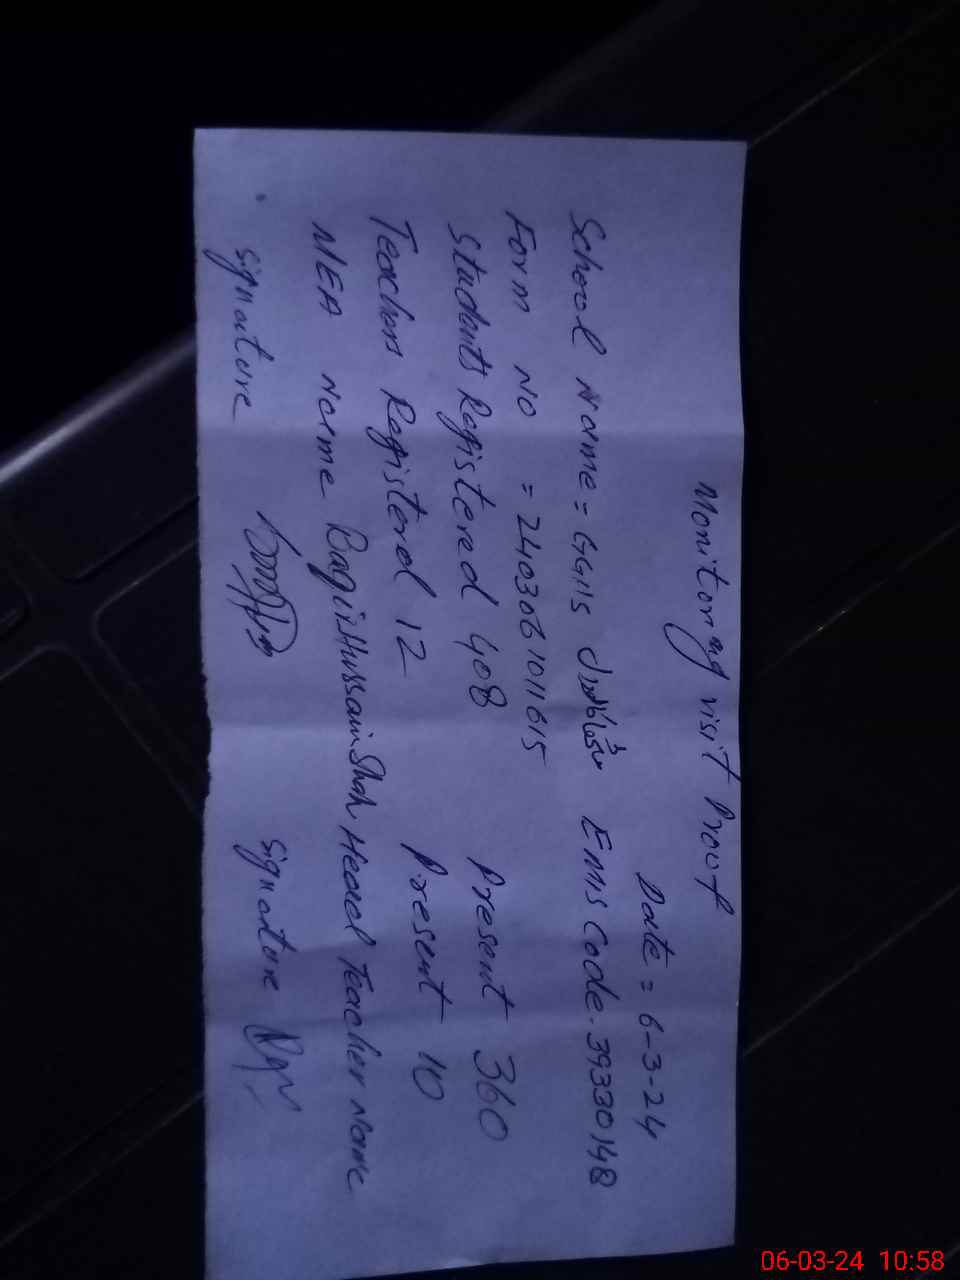 Monitoring visit Proof
Date = 6-3-24
School Name = GGHS EMIS Code. 39330148
Form No = 240306101 1615
Students Registered 408 Present 360
Teachers Registered 12 Present 10
MEA Name Baqir Hussain Shah Head Teacher Name
Signature Signature
06-03-24 10:58